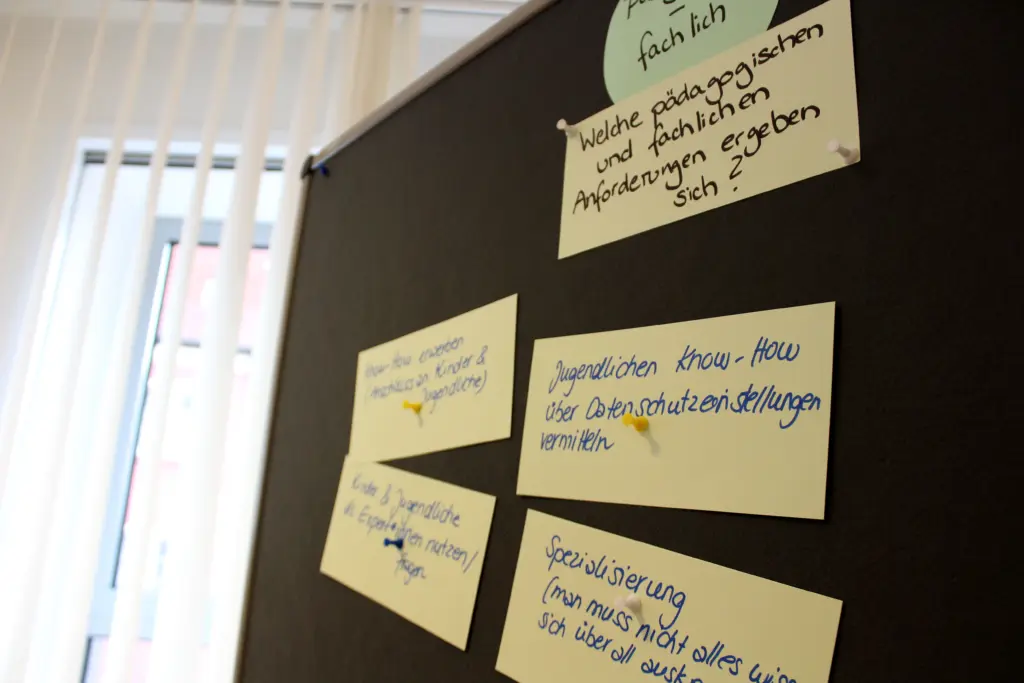 fachlich
Welche pädagogischen
und fachlichen
Anforderungen ergeben
sich?
Know-How erwerben
(Anschluss an Kinder &
Jugendliche)
Jugendlichen Know-How
über Datenschutzeinstellungen
vermitteln
Kinder & Jugendliche
als Expert*innen nutzen/
fragen
Spezialisierung
(man muss nicht alles
sich überall